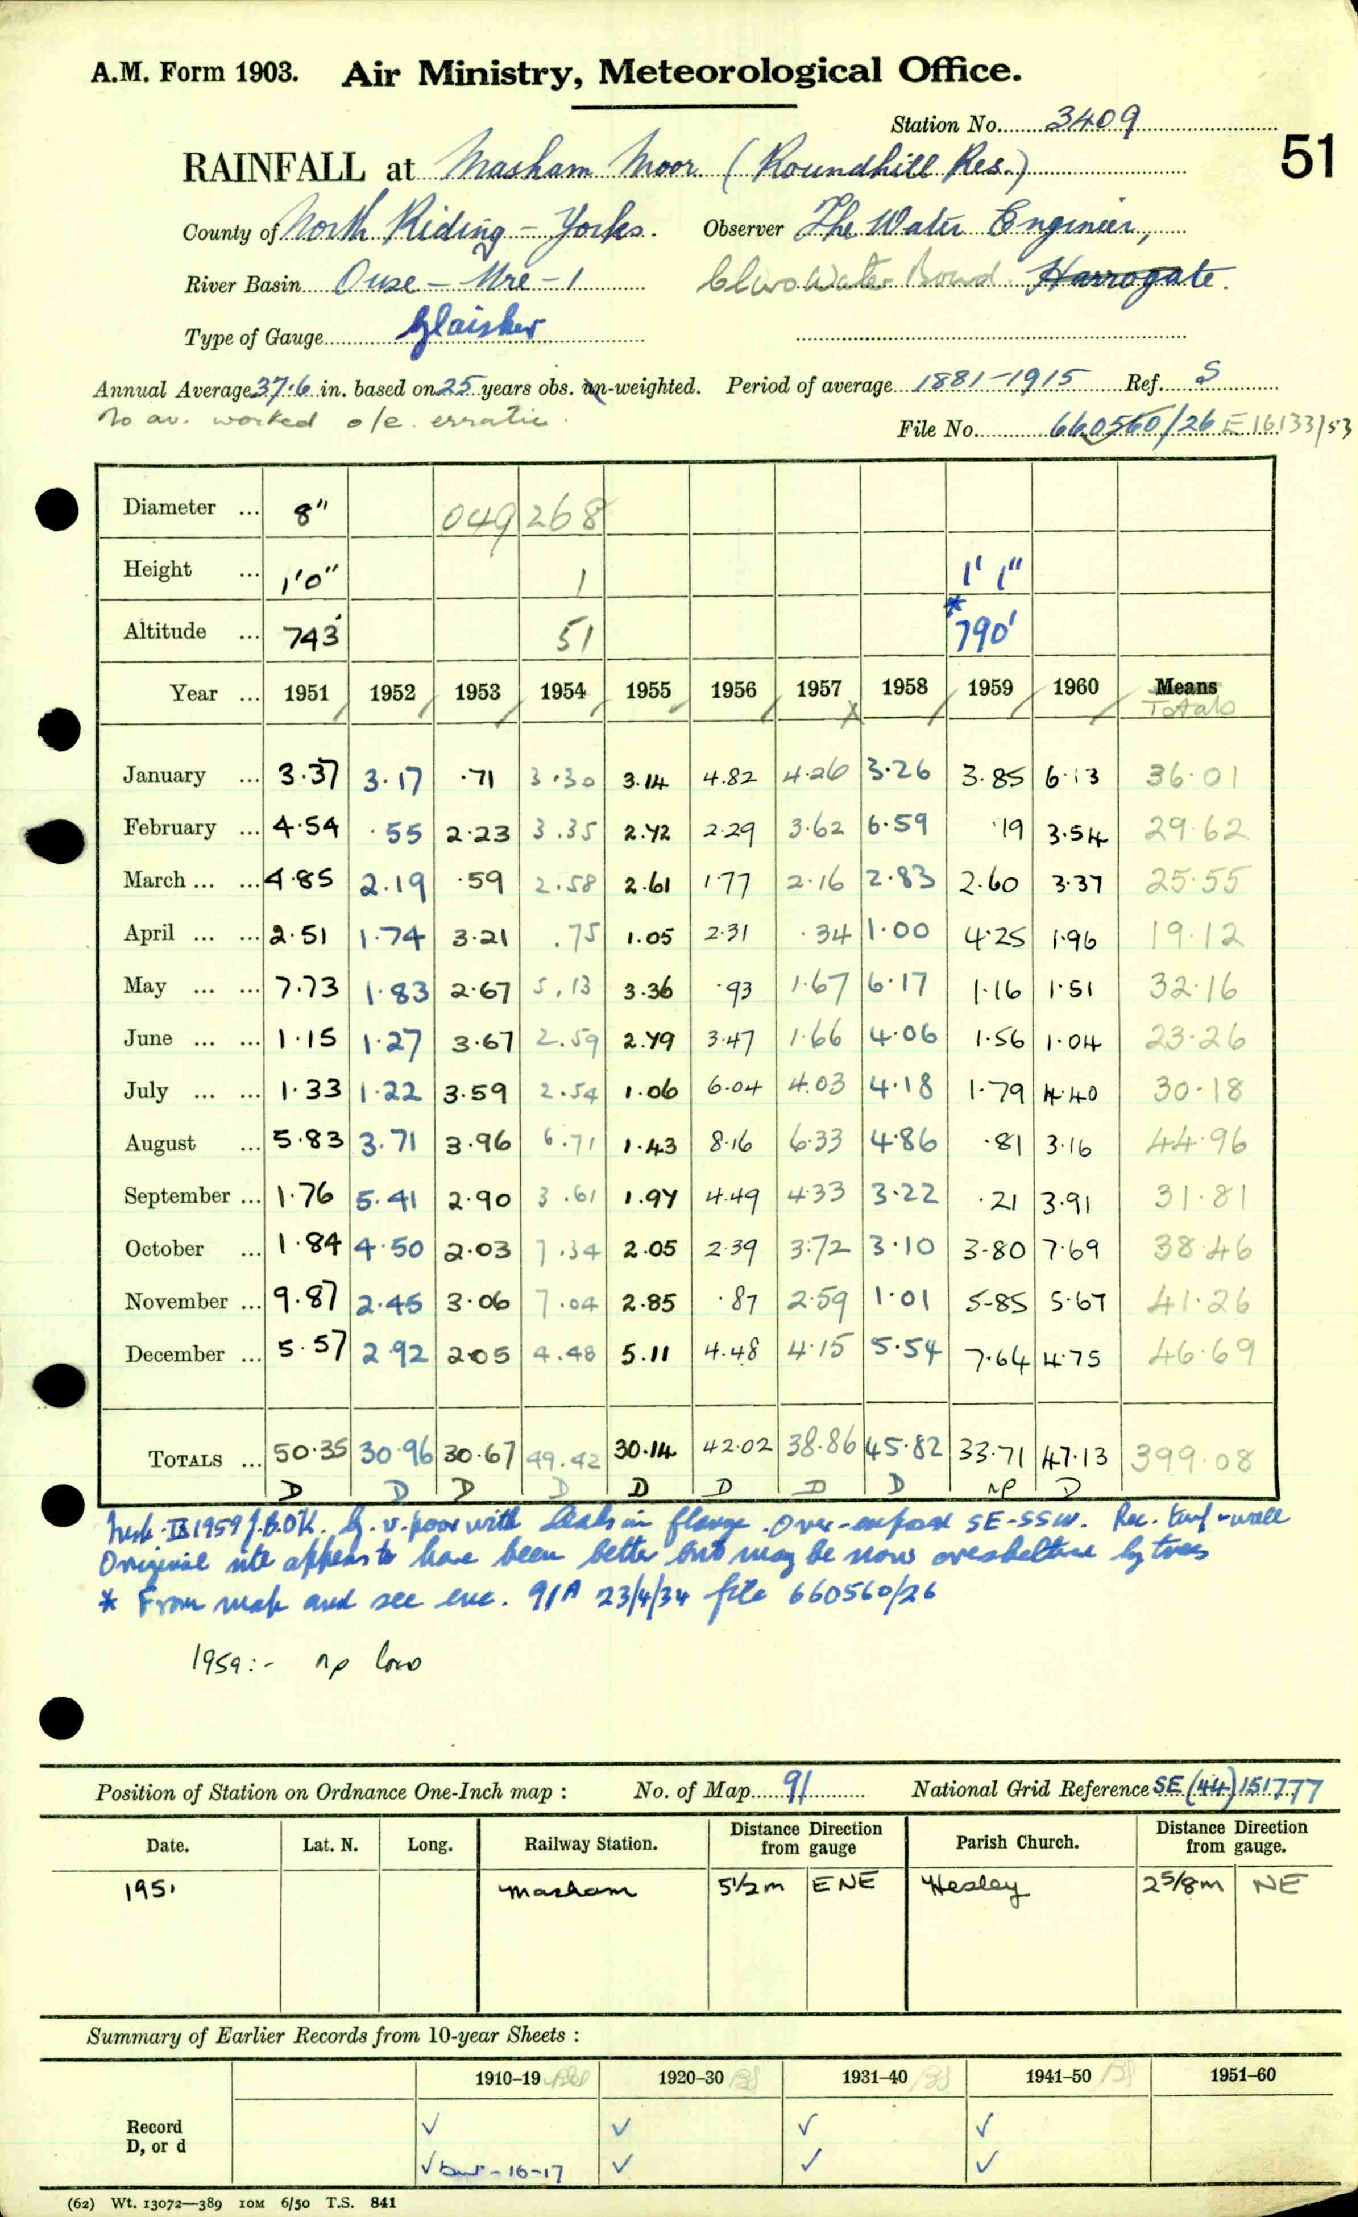 A.M. Form 1903. Air Ministry, Meteorological Office.
Station No. 3409
51
RAINFALL at Masham Moor (Roundhill Res.)
County of North Riding - Yorks. Observer The Water Engineer,
River Basin Ouse - Ure - 1 Claro Water Board Harrogate.
Type of Gauge Glaisher
Annual Average 37.6 in. based on 25 years obs. un-weighted. Period of average 1881-1915 Ref. S
No av. worked o/e erratic.
File No. 660560/26 E16133/53
Diameter ... 8" 049 268
Height ... 1'0" 1 1' 1"
Altitude ... 743' 51 * 790'
Year ... 1951 1952 1953 1954 1955 1956 1957 1958 1959 1960 Means
Totals
January ... 3.37 3.17 .71 3.30 3.14 4.82 4.26 3.26 3.85 6.13 36.01
February ... 4.54 .55 2.23 3.35 2.72 2.29 3.62 6.59 .19 3.54 29.62
March ... ... 4.85 2.19 .59 2.58 2.61 1.77 2.16 2.83 2.60 3.37 25.55
April ... ... 2.51 1.74 3.21 .75 1.05 2.31 .34 1.00 4.25 1.96 19.12
May ... ... 7.73 1.83 2.67 5.13 3.36 .93 1.67 6.17 1.16 1.51 32.16
June ... ... 1.15 1.27 3.67 2.59 2.79 3.47 1.66 4.06 1.56 1.04 23.26
July ... ... 1.33 1.22 3.59 2.54 1.06 6.04 4.03 4.18 1.79 4.40 30.18
August ... 5.83 3.71 3.96 6.71 1.43 8.16 6.33 4.86 .81 3.16 44.96
September ... 1.76 5.41 2.90 3.61 1.97 4.49 4.33 3.22 .21 3.91 31.81
October ... 1.84 4.50 2.03 7.34 2.05 2.39 3.72 3.10 3.80 7.69 38.46
November ... 9.87 2.45 3.06 7.04 2.85 .87 2.59 1.01 5.85 5.67 41.26
December ... 5.57 2.92 2.05 4.48 5.11 4.48 4.15 5.54 7.64 4.75 46.69
TOTALS ... 50.35 30.96 30.67 49.42 30.14 42.02 38.86 45.82 33.71 47.13 399.08
D D D D D D D D np D
Insp. IX 1959 J.B.OK. G. v. poor with leaks in flange. Over-exposed SE-SSW. Rec. turf-wall
Original site appears to have been better but may be now oversheltered by trees
* From map and see enc. 91A 23/4/34 file 660560/26
1959:- np low
Position of Station on Ordnance One-Inch map : No. of Map 91 National Grid Reference SE (44) 151777
Date. Lat. N. Long. Railway Station. Distance Direction from gauge Parish Church. Distance Direction from gauge.
1951 Masham 5½m ENE Healey 2⅝m NE
Summary of Earlier Records from 10-year Sheets :
1910-19 1920-30 1931-40 1941-50 1951-60
Record ✓ ✓ ✓ ✓
D, or d ✓ but - 16-17 ✓ ✓ ✓
(62) Wt. 13072—389 10M 6/50 T.S. 841